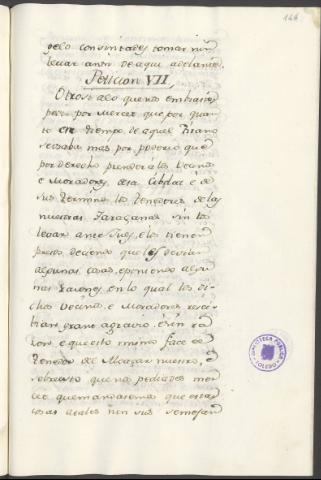 146
gelo consintades tomar nin
levar antes de aqui adelante.
Peticion VII,
Otrosi a lo que nos embiaron
pedir por Merced que por quan
to en tiempo de aquel tirano
se usaba mas por poderio que
por derecho prender a los Vecinos
e Moradores desa Cibdat e de
sus terminos los tenedores de las
nuestras Taraçanas sin los
levar ante Jues, e los tienen
presos deciendo que les deven
algunas cosas, e poniendo algu
nas razones, en lo qual los di
chos Vecinos e Moradores resce
bian grant agravio, e sin ra
zon, e que esto mismo face el
tenedor del Alcazar nuestro,
e que nos pediades mer
ced que mandasemos que estas
cosas atales nin sus semejan
BIBLIOTECA PUBLICA
TOLEDO